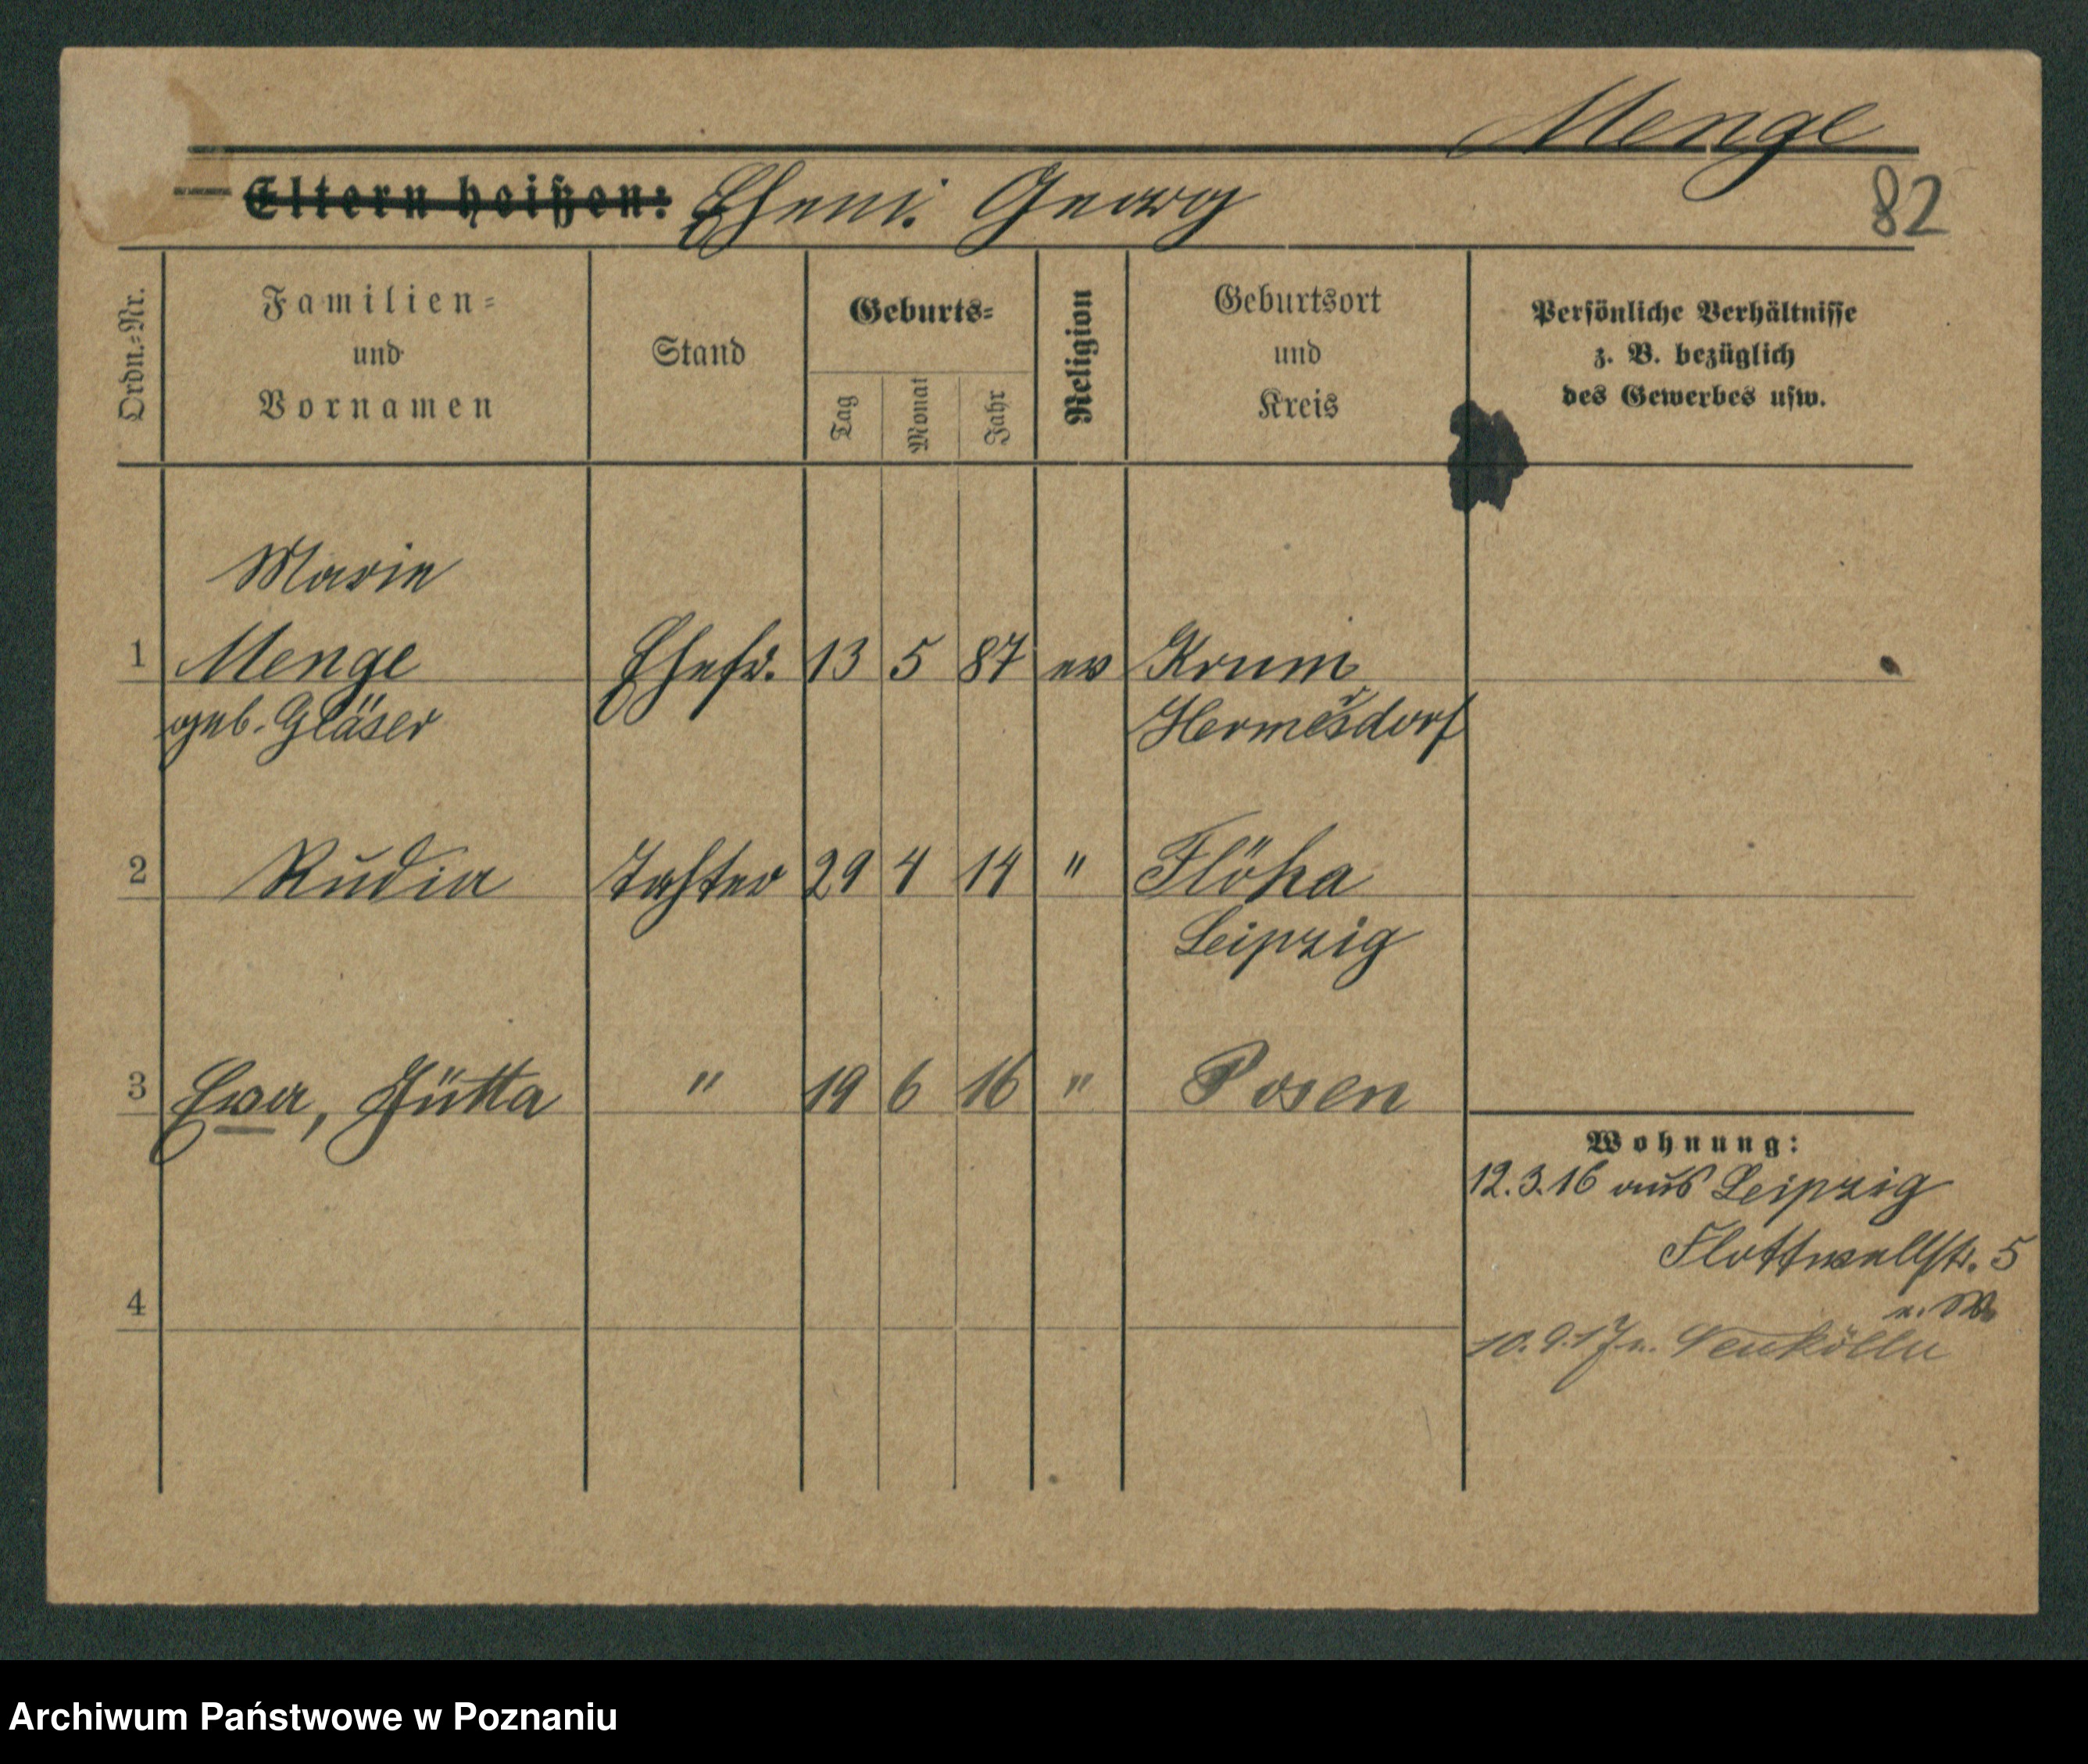 Menge
82
Eltern heißen: Ehem. Georg
Ordn.=Nr.
Familien=
und
Vornamen
Stand
Geburts=
Tag
Monat
Jahr
Religion
Geburtsort
und
Kreis
Persönliche Verhältnisse
z. B. bezüglich
des Gewerbes usw.
Marie
1 Menge Ehefr. 13 5 87 ev Krum
geb. Gläser Hermesdorf
2 Tochter 29 4 14 " Flöha
Leipzig
3 Ewa, Jutta " 19 6 16 " Posen
Wohnung:
12.3.16 aus Leipzig
Flottwellstr. 5
4
10.9.17 n. Neukölln
Archiwum Państwowe w Poznaniu